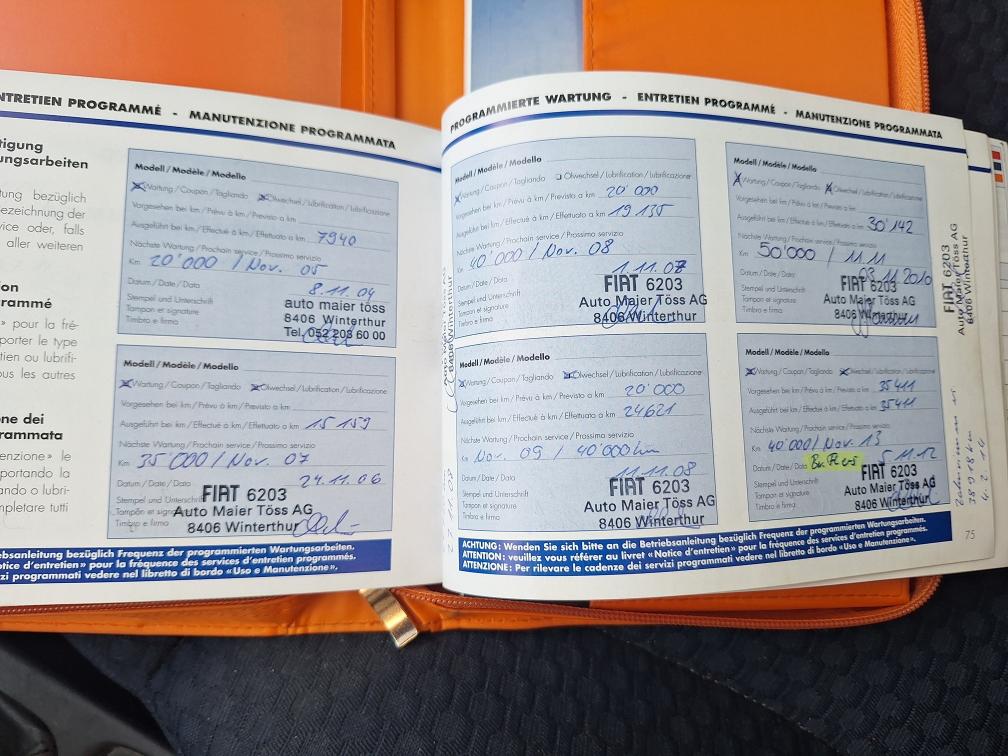 NTRETIEN PROGRAMMÉ - MANUTENZIONE PROGRAMMATA
tigung
ungsarbeiten
tung bezüglich
ezeichnung der
vice oder, falls
aller weiteren
ion
grammé
» pour la fré-
porter le type
tien ou lubrifi-
ous les autres
one dei
grammata
nzione» le
portando la
ando o lubri-
mpletare tutti
Modell / Modèle / Modello
Wartung / Coupon / Tagliando Ölwechsel / Lubrification / Lubrificazione
Vorgesehen bei km / Prévu à km / Previsto a km
Ausgeführt bei km / Effectué à km / Effettuato a km 7940
Nächste Wartung / Prochain service / Prossimo servizio
Km 20'000 / Nov. 05
Datum / Date / Data 8.11.04
Stempel und Unterschrift
Tampon et signature
Timbro e firma
auto maier töss
8406 Winterthur
Tel. 052 203 60 00
Modell / Modèle / Modello
Wartung / Coupon / Tagliando Ölwechsel / Lubrification / Lubrificazione
Vorgesehen bei km / Prévu à km / Previsto a km
Ausgeführt bei km / Effectué à km / Effettuato a km 15 159
Nächste Wartung / Prochain service / Prossimo servizio
Km 35'000 / Nov. 07
Datum / Date / Data 24.11.06
Stempel und Unterschrift
Tampon et signature
Timbro e firma
FIAT 6203
Auto Maier Töss AG
8406 Winterthur
ebsanleitung bezüglich Frequenz der programmierten Wartungsarbeiten.
otice d'entretien» pour la fréquence des services d'entretien programmés.
izi programmati vedere nel libretto di bordo «Uso e Manutenzione».
PROGRAMMIERTE WARTUNG - ENTRETIEN PROGRAMMÉ - MANUTENZIONE PROGRAMMATA
Modell / Modèle / Modello
Wartung / Coupon / Tagliando Ölwechsel / Lubrification / Lubrificazione
Vorgesehen bei km / Prévu à km / Previsto a km 20'000
Ausgeführt bei km / Effectué à km / Effettuato a km 19 135
Nächste Wartung / Prochain service / Prossimo servizio
Km 40'000 / Nov. 08
Datum / Date / Data 1.11.07
Stempel und Unterschrift
Tampon et signature
Timbro e firma
FIAT 6203
Auto Maier Töss AG
8406 Winterthur
Modell / Modèle / Modello
Wartung / Coupon / Tagliando Ölwechsel / Lubrification / Lubrificazione
Vorgesehen bei km / Prévu à km / Previsto a km 20'000
Ausgeführt bei km / Effectué à km / Effettuato a km 24621
Nächste Wartung / Prochain service / Prossimo servizio
Km Nov. 09 / 40'000km
Datum / Date / Data 11.11.08
Stempel und Unterschrift
Tampon et signature
Timbro e firma
FIAT 6203
Auto Maier Töss AG
8406 Winterthur
Modell / Modèle / Modello
Wartung / Coupon / Tagliando Ölwechsel / Lubrification / Lubrificazione
Vorgesehen bei km / Prévu à km / Previsto a km
Ausgeführt bei km / Effectué à km / Effettuato a km 30'142
Nächste Wartung / Prochain service / Prossimo servizio
Km 50'000 / 11.11
Datum / Date / Data 03.11.2010
Stempel und Unterschrift
Tampon et signature
Timbro e firma
FIAT 6203
Auto Maier Töss AG
8406 Winterthur
Modell / Modèle / Modello
Wartung / Coupon / Tagliando Ölwechsel / Lubrification / Lubrificazione
Vorgesehen bei km / Prévu à km / Previsto a km 35411
Ausgeführt bei km / Effectué à km / Effettuato a km 35411
Nächste Wartung / Prochain service / Prossimo servizio
Km 40'000 / Nov. 13
Datum / Date / Data 5.11.12
Stempel und Unterschrift
Tampon et signature
Timbro e firma
FIAT 6203
Auto Maier Töss AG
8406 Winterthur
FIAT 6203
Auto Maier Töss AG
8406 Winterthur
Zahnriemen
38918 km
4.2.14
75
ACHTUNG: Wenden Sie sich bitte an die Betriebsanleitung bezüglich Frequenz der programmierten Wartungsarbeiten.
ATTENTION: veuillez vous référer au livret «Notice d'entretien» pour la fréquence des services d'entretien programmés.
ATTENZIONE: Per rilevare le cadenze dei servizi programmati vedere nel libretto di bordo «Uso e Manutenzione».